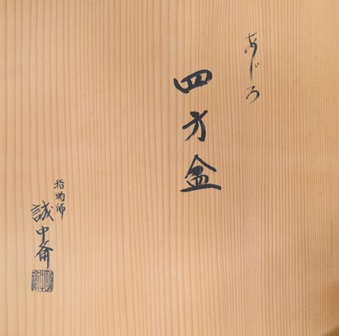 あじろ
四方盆
指物師
誠中斎